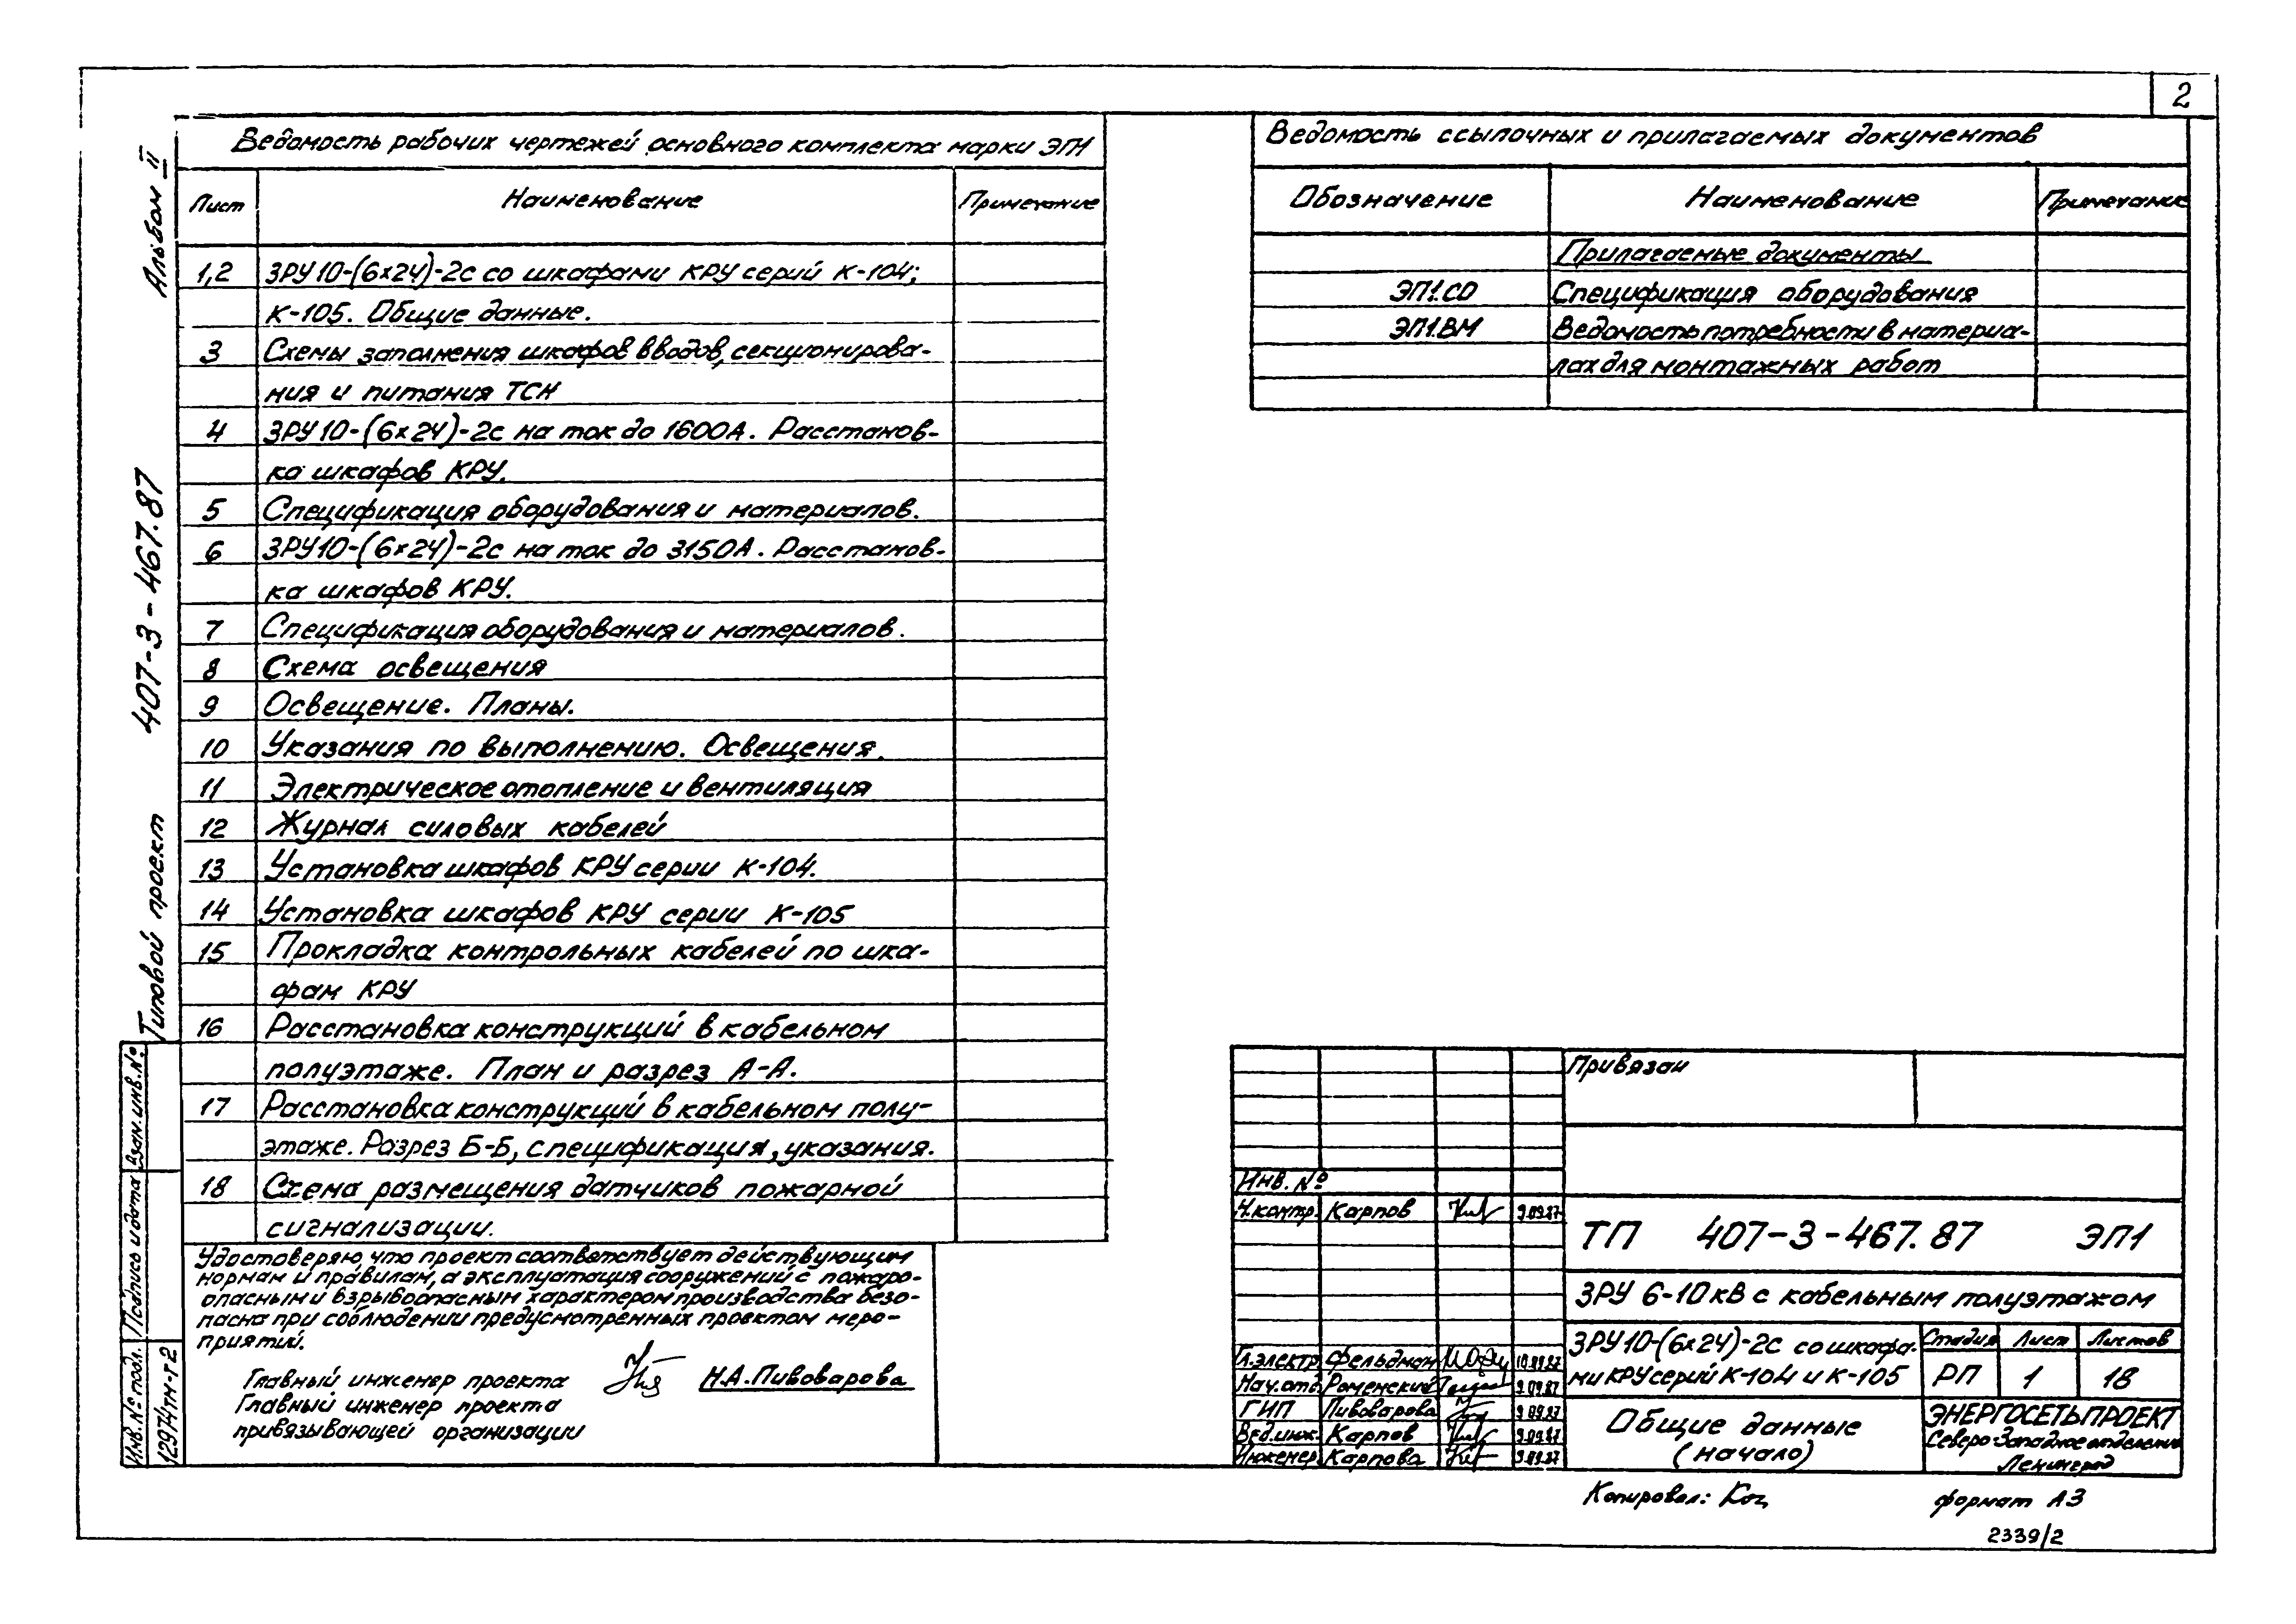 2
Альбом II
Типовой проект 407-3-467.87
Ведомость рабочих чертежей основного комплекта марки ЭП1
Лист Наименование Примечание
1,2 ЗРУ10-(6х24)-2с со шкафами КРУ серий К-104;
К-105. Общие данные.
3 Схемы заполнения шкафов вводов, секционирова-
ния и питания ТСН
4 ЗРУ10-(6х24)-2с на ток до 1600А. Расстанов-
ка шкафов КРУ.
5 Спецификация оборудования и материалов.
6 ЗРУ10-(6х24)-2с на ток до 3150А. Расстанов-
ка шкафов КРУ.
7 Спецификация оборудования и материалов.
8 Схема освещения
9 Освещение. Планы.
10 Указания по выполнению. Освещения.
11 Электрическое отопление и вентиляция
12 Журнал силовых кабелей
13 Установка шкафов КРУ серии К-104.
14 Установка шкафов КРУ серии К-105
15 Прокладка контрольных кабелей по шка-
фам КРУ
16 Расстановка конструкций в кабельном
полуэтаже. План и разрез А-А.
17 Расстановка конструкций в кабельном полу-
этаже. Разрез Б-Б, спецификация, указания.
18 Схема размещения датчиков пожарной
сигнализации.
Удостоверяю, что проект соответствует действующим
нормам и правилам, а эксплуатация сооружений с пожаро-
опасным и взрывоопасным характером производства безо-
пасна при соблюдении предусмотренных проектом меро-
приятий.
Главный инженер проекта Н.А.Пивоварова
Главный инженер проекта
привязывающей организации
Взам.инв.№
Подпись и дата
Инв.№ подл.
12974тм-т2
Ведомость ссылочных и прилагаемых документов
Обозначение Наименование Примечание
Прилагаемые документы
ЭП1.СО Спецификация оборудования
ЭП1.ВМ Ведомость потребности в материа-
лах для монтажных работ
Привязан
Инв. №
Н.контр. Карпов 9.09.87
ТП 407-3-467.87 ЭП1
ЗРУ 6-10 кВ с кабельным полуэтажом
ЗРУ10-(6х24)-2с со шкафа-
ми КРУ серий К-104 и К-105
Стадия Лист Листов
РП 1 18
Гл.электр. Фельдман 10.09.87
Нач.отд. Роменский 9.09.87
ГИП Пивоварова 9.09.87
Вед.инж. Карпов 9.09.87
Инженер Карпова 9.09.87
Общие данные
(начало)
ЭНЕРГОСЕТЬПРОЕКТ
Северо-Западное отделение
Ленинград
Копировал:
формат А3
2339/2